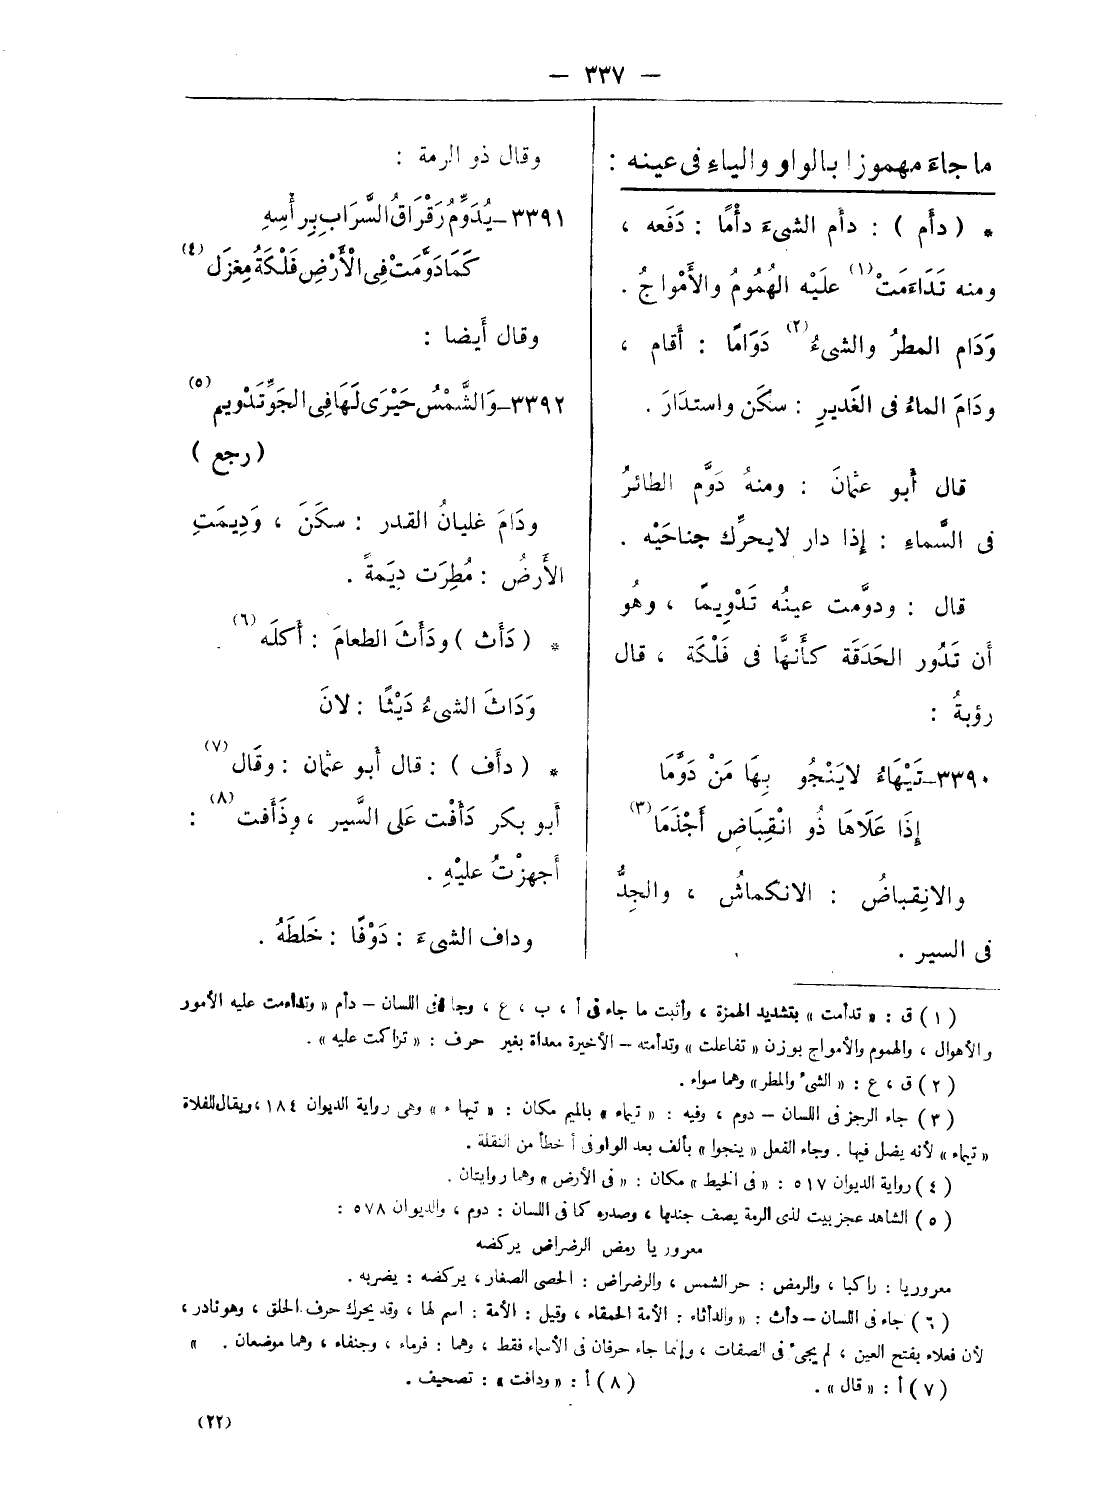 — ٣٣٧ —
ما جاءَ مهموزا بالواو والياءِ فى عينه :
* ( دأَم ) : دأَم الشىءَ دأْمًا : دَفَعه ،
ومنه تَدَاءَمَتْ (١) علَيْه الهُمُومُ والأَمْواجُ .
وَدَام المطرُ والشىءُ (٢) دَوَامًا : أَقام ،
ودَامَ الماءُ فى الغَديرِ : سكَن واستدَارَ .
قال أَبو عثمانَ : ومنهُ دَوَّم الطائرُ
فى السَّماءِ : إِذا دار لايحرِّك جناحَيْه .
قال : ودوَّمت عينُه تَدْوِيمًا ، وهُو
أَن تَدُور الحَدَقة كأَنهَّا فى فَلْكَة ، قال
رؤبةُ :
٣٣٩٠ــ تَيْهَاءُ لايَنْجُو بِهَا مَنْ دَوَّمَا
إِذَا عَلَاهَا ذُو انْقِبَاضٍ أَجْذَمَا (٣)
والانِقباضُ : الانكماشُ ، والجِدُّ
فى السير .
وقال ذو الرمة :
٣٣٩١ــ يُدَوِّمُ رَقْرَاقُ السَّرَابِ بِرأْسِهِ
كَمَا دَوَّمَتْ فِى الْأَرْضِ فَلْكَةُ مِغزَل (٤)
وقال أَيضا :
٣٣٩٢ــ وَالشَّمْسُ حَيْرَى لَهَا فِى الجَوِّ تَدْويم (٥)
( رجع )
ودَامَ غليانُ القدر : سكَنَ ، وَدِيمَتِ
الأَرضُ : مُطِرَت دِيَمةً .
* ( دَأَث ) ودَأَثَ الطعامَ : أَكلَه (٦) .
وَدَاثَ الشىءُ دَيْثًا : لانَ
* ( دأَف ) : قال أَبو عثمان : وقَال (٧)
أَبو بكر دَأَفْت علَى السَّير ، وذَأَفت (٨) :
أَجهزْتُ عليْهِ .
وداف الشىءَ : دَوْفًا : خَلطَهُ .
( ١ ) ق : « تدأمت » بتشديد الهمزة ، وأثبت ما جاء فى أ ، ب ، ع ، وجاء فى اللسان – دأم « وتداءمت عليه الأمور
والأهوال ، والهموم والأمواج بوزن « تفاعلت » وتدأمته – الأخيرة معداة بغير حرف : « تراكمت عليه » .
( ٢ ) ق ، ع : « الشئ والمطر » وهما سواء .
( ٣ ) جاء الرجز فى اللسان – دوم ، وفيه : « تيماء » بالميم مكان : « تيهاء » وهى رواية الديوان ١٨٤ ، ويقال للفلاة
« تيماء » لأنه يضل فيها . وجاء الفعل « ينجوا » بألف بعد الواو فى أ خطأ من النقلة .
( ٤ ) رواية الديوان ٥١٧ : « فى الخيط » مكان : « فى الأرض » وهما روايتان .
( ٥ ) الشاهد عجز بيت لذى الرمة يصف جندبا ، وصدره كما فى اللسان : دوم ، والديوان ٥٧٨ :
معروريا رمض الرضراض يركضه
معروريا : راكبا ، والرمض : حر الشمس ، والرضراض : الحصى الصغار ، يركضه : يضربه .
( ٦ ) جاء فى اللسان – دأث : « والدأثاء : الأمة الحمقاء ، وقيل : الأمة : اسم لها ، وقد يحرك حرف الحلق ، وهو نادر ،
لأن فعلاء بفتح العين ، لم يجئ فى الصفات ، وإنما جاء حرفان فى الأسماء فقط ، وهما : فرماء ، وجنفاء ، وهما موضعان . »
( ٧ ) أ : « قال » .
( ٨ ) أ : « ودافت » : تصحيف .
(٢٢)